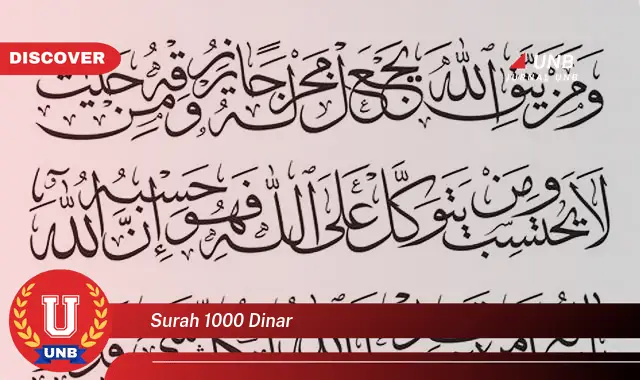 DISCOVER
UNB
JURNAL UNB
وَمَنْ يَتَّقِ اللَّهَ يَجْعَلْ لَهُ مَخْرَجًا وَيَرْزُقْهُ مِنْ حَيْثُ
لَا يَحْتَسِبُ وَمَنْ يَتَوَكَّلْ عَلَى اللَّهِ فَهُوَ حَسْبُهُ إِنَّ اللَّهَ
Surah 1000 Dinar
U
UNB